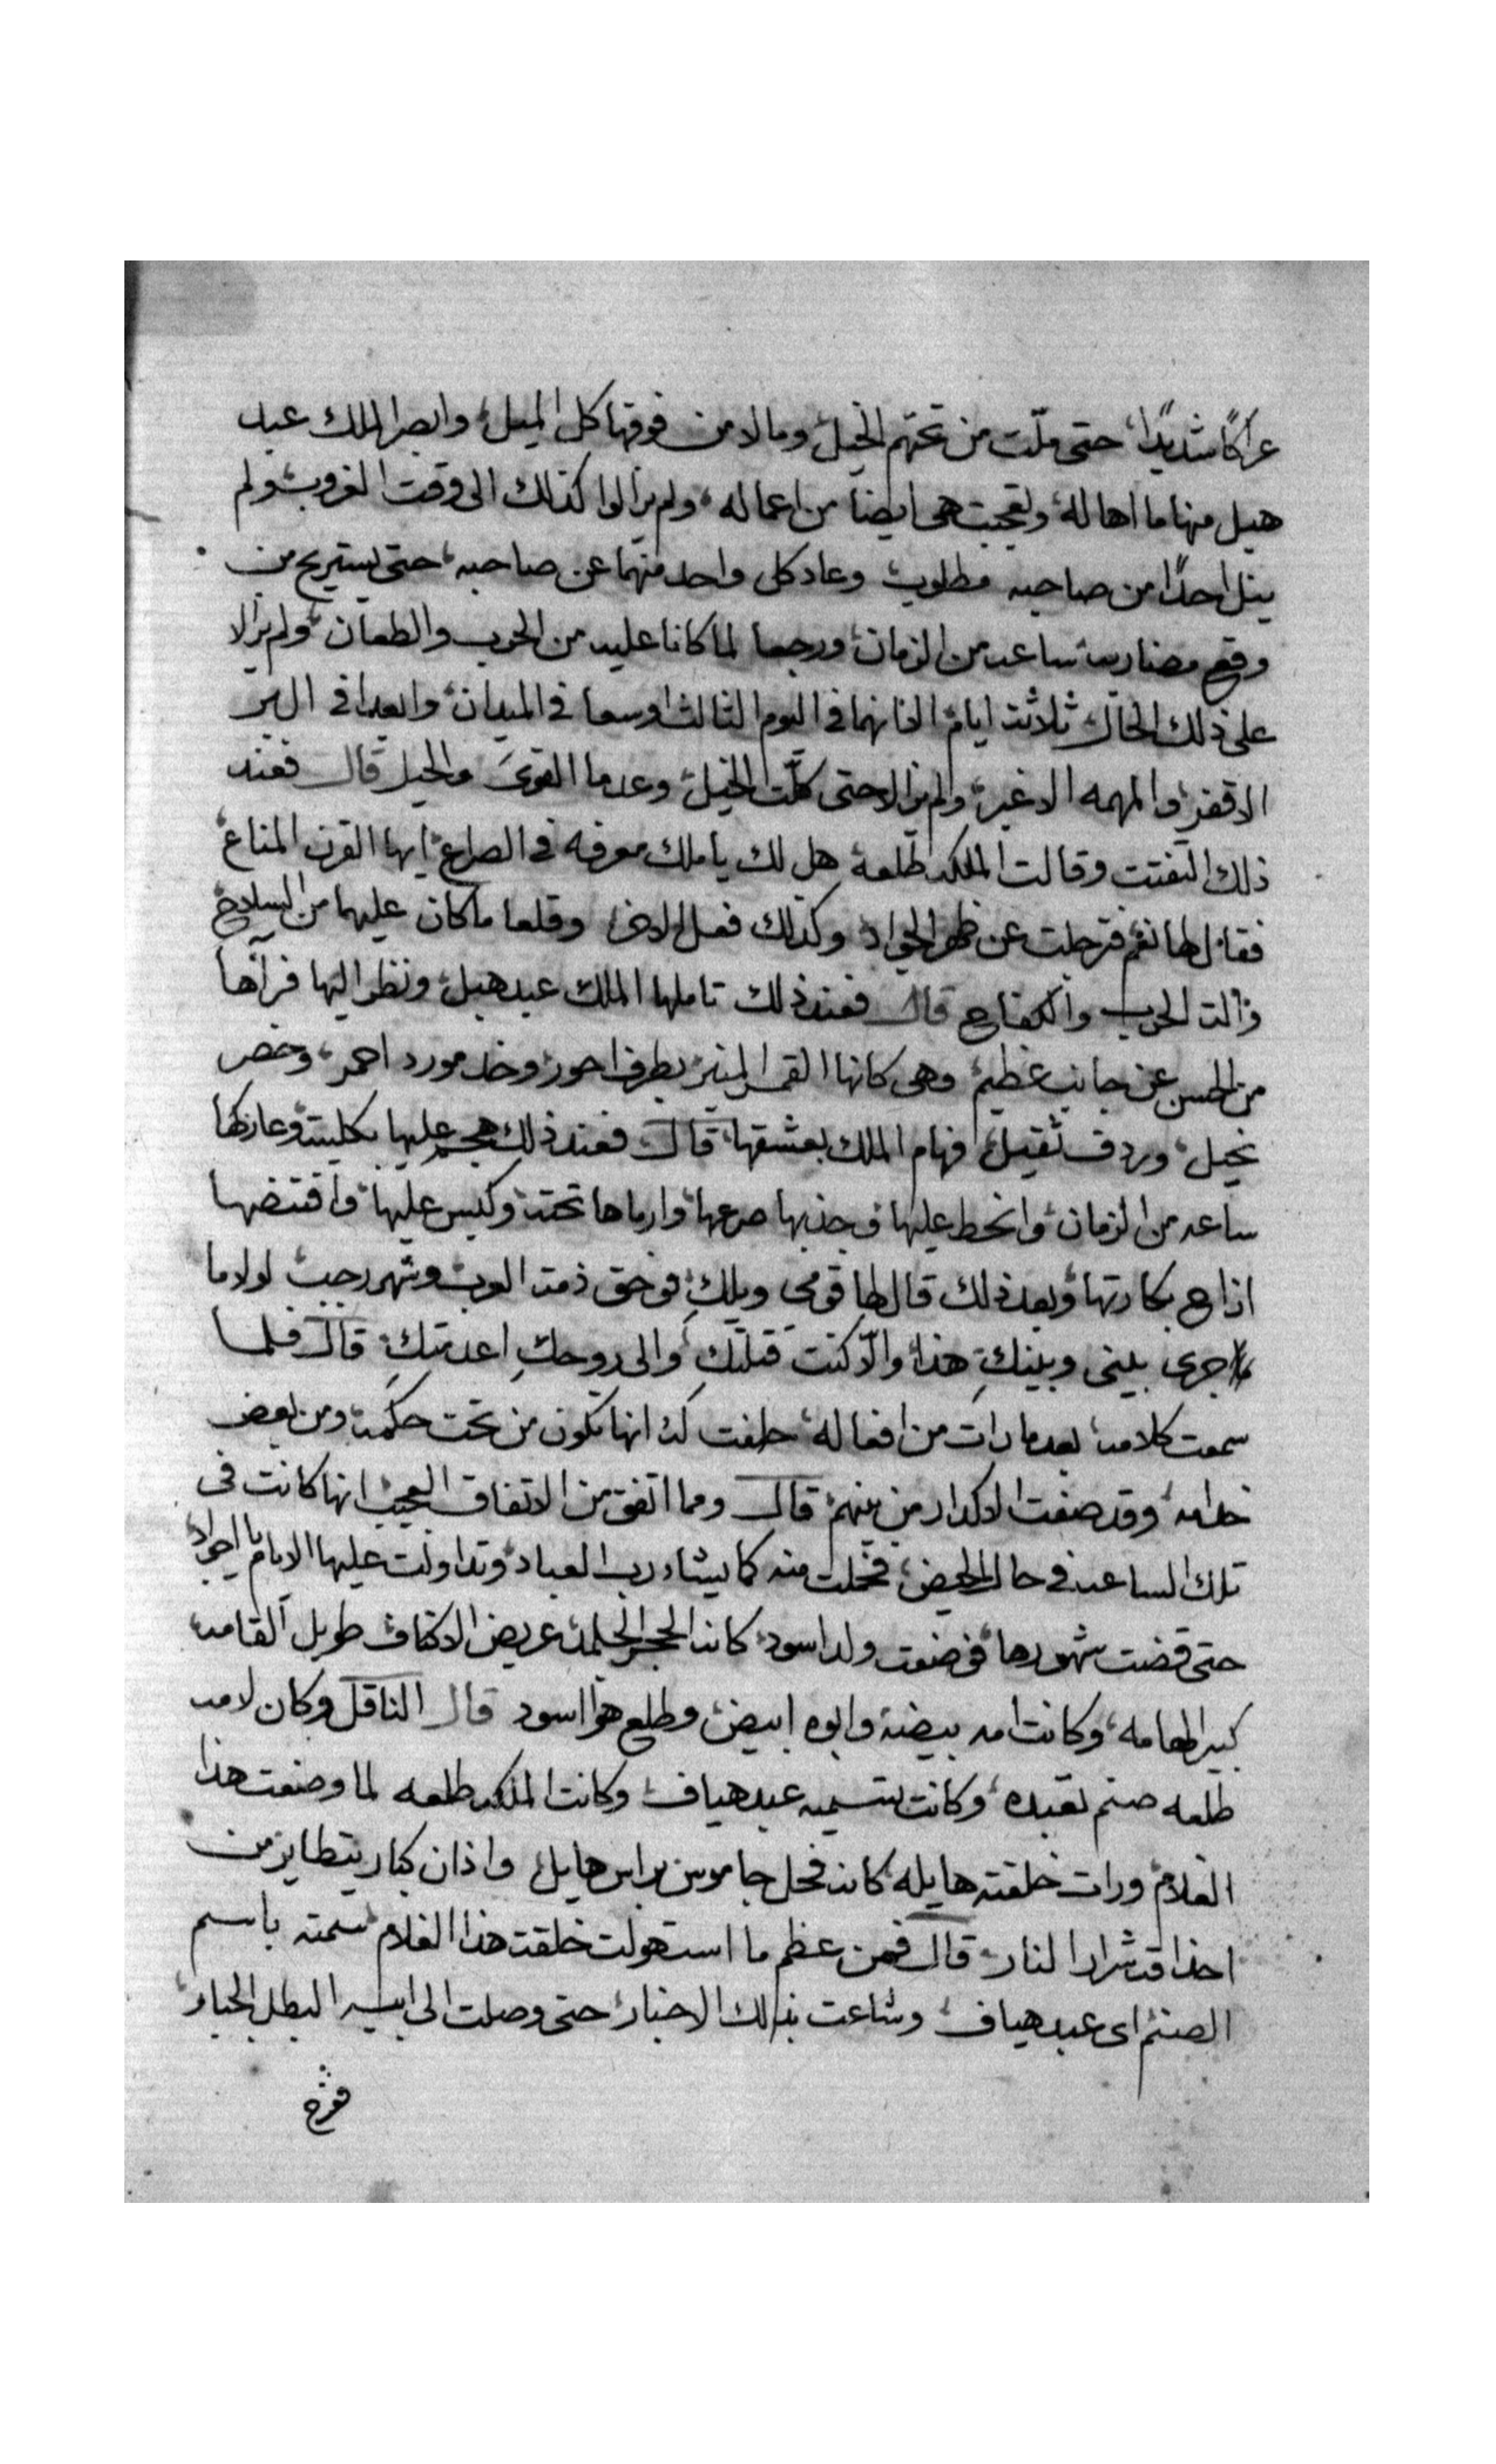 عراكًا شديدًا، حتى ملّت من تحتهم الخيل، ومالا من فوقها كل الميل، وابصر الملك عبد
هبل منها ما اهاله، وتعجبت هى ايضا من اعماله، ولم يزالوا كذلك الى وقت الغروب، ولم
ينل احدًا من صاحبه مطلوب، وعاد كل واحد منهما عن صاحبه، حتى يستريح من
وقع مضاربه ساعه من الزمان، ورجعا لما كانا عليه من الحرب والطعان، ولم يزالا
على ذلك الحال ثلاثة ايام، الا انهما فى اليوم الثالث اوسعا فى الميدان، وابعدا فى البر
الاقفر، والمهمه الاغبر، ولم يزالا حتى كلّت الخيل، وعدما القوىَ والحيل قال فعند
ذلك التفتت وقالت الملكه طلعة هل لك يا ملك معرفه فى الصراع، ايها القرن المناع،
فقال لها نعم فترجلت عن ظهر الجواد، وكذلك فعل الاخر، وقلعا ما كان عليهما من السلاح،
والت الحرب والكفاح قال فعند ذلك تاملها الملك عبد هبل، ونظر اليها فرآها
من الحسن عن جانب عظيم، وهى كانها القمر المنير، بطرف احور، وخد مورد احمر، وخصر
نحيل، وردف ثقيل، فهام الملك بعشقها، قال فعند ذلك هجم عليها بكليته، وعاركها
ساعه من الزمان، وانحط عليها فجذبها صرعها، وارماها تحته، وكبس عليها، وافتضها
اذاح بكارتها، وبعد ذلك قال لها قومى ويلكِ، فوحق ذمة العرب، وشهر رجب، لولا ما
جرى بينى وبينكِ هذا، والّا كنت قتلتكِ، والى روحكِ اعدمتكِ، قال فلما
سمعت كلامه، بعد ما رات من افعاله، حلفت له، انها تكون من تحت حكمه، ومن بعض
خدامه، وقد صفت الاكدار من بينهم، قال ومما اتفق من الاتفاق العجيب، انها كانت فى
تلك الساعه فى حال الحيض، فحملت منه كما يشاء رب العباد، وتداولت عليها الايام يا اجواد،
حتى قضت شهورها، فوضعت ولد اسود، كانه الحجر الجلمد، عريض الاكتاف، طويل القامه،
كبير الهامه، وكانت امه بيضة وابوه ابيض، وطلع هوّا اسود قال الناقل وكان لامه
طلعه صنم تعبده، وكانت تسميه عبد هياف، وكانت الملكه طلعه لما وضعت هذا
الغلام، ورات خلقته هايله، كانه فحل جاموس براس هايل، واذان كبار يتطاير من
احداقه شرار النار، قال فمن عظم ما استهولت خلقت هذا الغلام، سمته باسم
الصنم، اى عبد هياف، وشاعت بذلك الاخبار، حتى وصلت الى ابيه البطل الجبار،